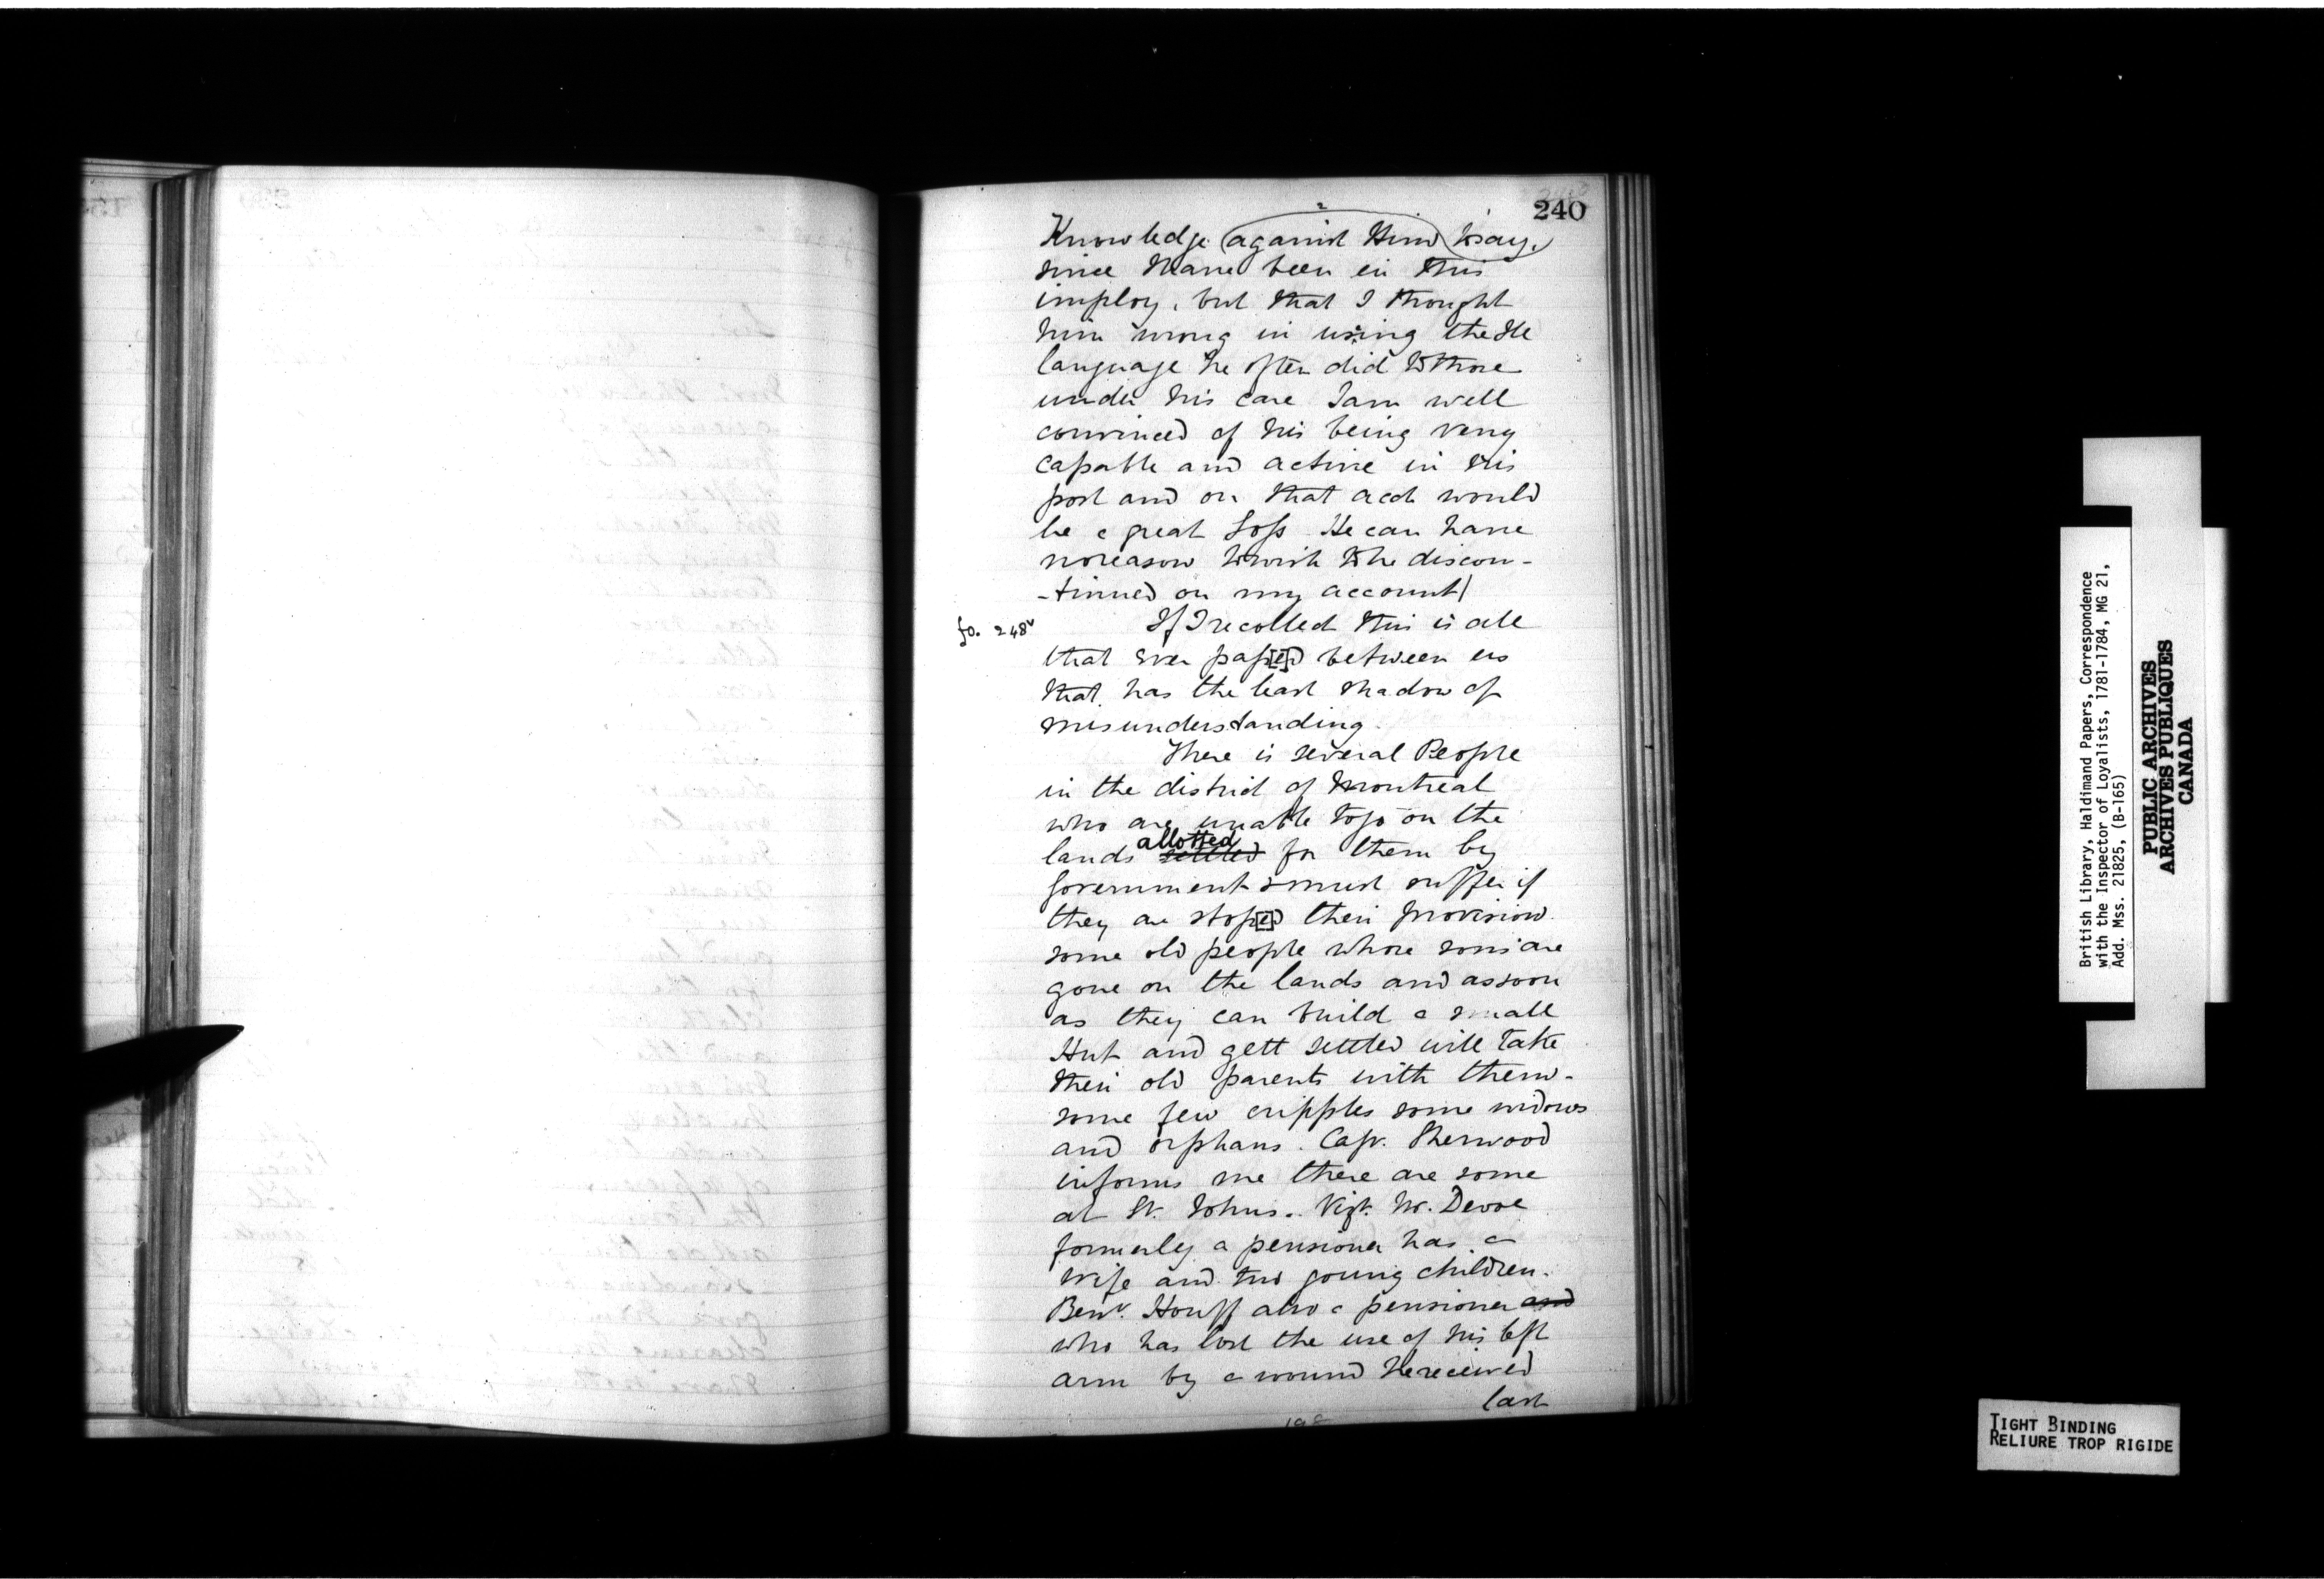 240
Knowledge against Him to say
since I have been in this
imploy, but that I thought
him wrong in using the Ile
language he often did to those
under his care I am well
convinced of his being very
capable and active in his
post and on that acct would
be a great Loss He can have
no reason to wish to be discon-
-tinued on my account
fo. 248v
If I recollect this is all
that ever passed between us
that has the least shadow of
misunderstanding.
There is several People
in the district of Montreal
who are unable to go on the
allotted
lands settled for them by
Government & must suffer if
they are stoped their provision
some old people whose sons are
gone on the lands and as soon
as they can build a small
Hut and gett settled will take
their old parents with them-
some few cripples some widows
and orphans. Capt. Sherwood
informs me there are some
at St. Johns. Vizt. Devoe
formerly a pensioner has a
wife and two young children.
Houff also a pensioner and
who has lost the use of his left
arm by a wound He received
last
British Library, Haldimand Papers, Correspondence
with the Inspector of Loyalists, 1781-1784, MG 21,
Add. Mss. 21825, (B-165)
PUBLIC ARCHIVES
ARCHIVES PUBLIQUES
CANADA
TIGHT BINDING
RELIURE TROP RIGIDE